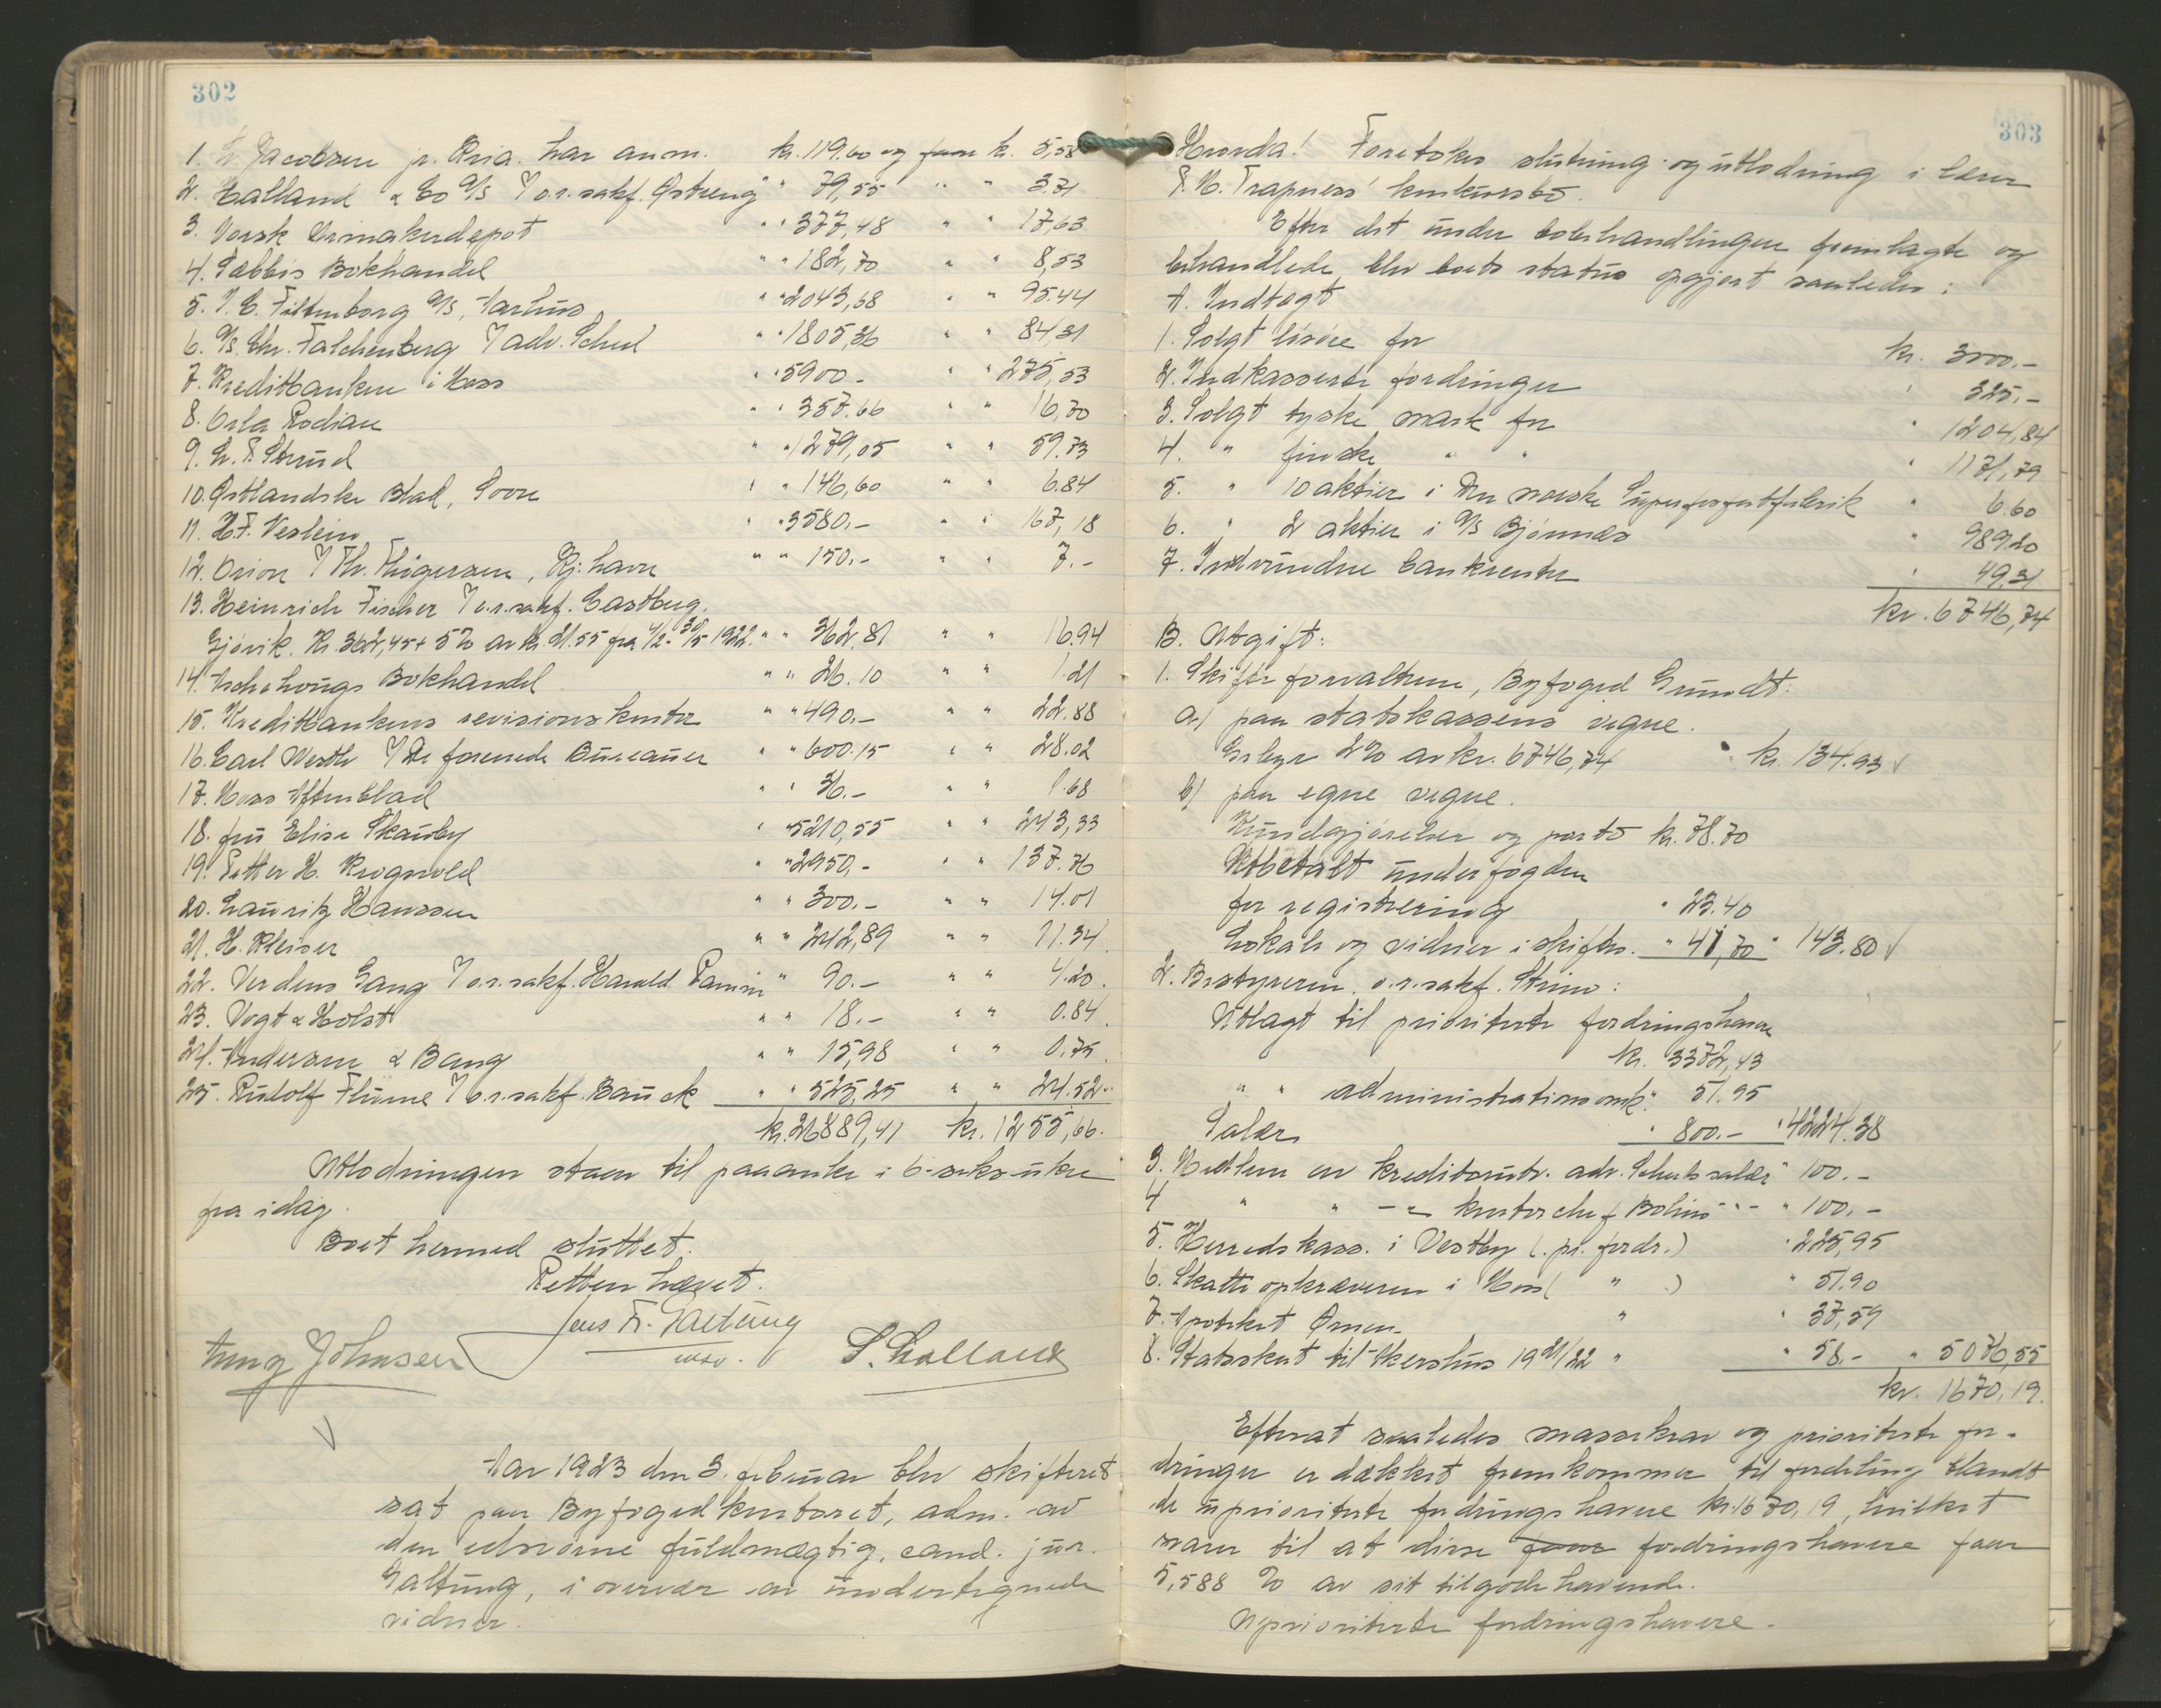 302
1. L. Jacobsen jr. Kria. har anm. kr. 119.60 og faar k. 5,58
2. Halland & Co A/S v/ o.r.sakf. Østreng " 79,55 " " 3.71
3. Norsk Urmakerdepot " " 377,48 " " 17,63
4. Sæbbis Bokhandel " " 182,70 " " 8,53
5. I. C. Filtenborg A/S, Aarhus " " 2043,68 " " 95.44
6. A/S. Chr. Falchenberg v/ adv. Schul " " 1805,36 " " 84,31
7. Kreditbanken i Moss " " 5900.- " " 275,53
8. Orla Rodian " " 357.66 " " 16,70
9. L. F. Strud " " 1279,05 " " 59.73
10. Østlandske Blad, Soon " " 146,60 " " 6.84
11. H.F. Veslein " " 3580.- " " 167,18
12. Orion v/ Th. Thigersen, Kj.havn " " 150.- " " 7.-
13. Heinrich Fischer v/ o.r.sakf. Castberg.
Gjøvik. Kr. 362,45 + 5% av kr. 21.55 fra 4/2 - 30/5 1922. " " 362,81 " " 16.94
14. Aschehougs Bokhandel " " 26.10 " " 1.21
15. Kreditbankens revisionskontor " " 490.- " " 22.88
16. Carl Westh v/ De forenede Bureauer " " 600.15 " " 28.02
17. Moss Aftenblad " " 36.- " " 1.68
18. fru Elise Skauby " " 5210,55 " " 243,33
19. Petter H. Krogsvold " " 2950,- " " 137.76
20. Lauritz Hanssen " " 300.- " " 14.01
21. H. Kleiser " " 242,89 " " 11.34
22. Verdens Gang v/ o.r.sakf. Harald Ramm " 90.- " " 4.20
23. Vogt & Holst " " 18.- " " 0.84
24. Andersen & Bang " " 15,98 " " 0.75
25. Rudolf Flüme v/ o.r.sakf. Bauck " " 525,25 " " 24.52
kr. 26889,41 kr. 1255,66.
Utlodningen staar til paaanke i 6-seks-uker
fra idag.
Boet hermed sluttet.
Retten hævet.
Jens Fr. Galtung
Aug Johnsen
S. Lolland
Aar 1923 den 3. februar blev skifteret
sat paa Byfogedkontoret, adm. av
den edsvorne fuldmægtig, cand. jur.
Galtung, i overvær av undertegnede
vidner.
303
Hvorda! Foretokes slutning og utlodning i lærer
F. N. Trapness' konkursbo.
Efter det under bobehandlingen fremlagte og
behandlede, blev boets status opgjort saaledes:
A. Indtægt
1. Solgt løsøre for kr. 3000.-
2. Indkasserte fordringer " 325.-
3. Solgt tyske mark for " 1204,84
4. " finske " " " 1171,79
5. " 10 aktier i Den norske Superfosfatfabrik " 6.60
6. " 2 aktier i A/S Bjørnnæs " 989.20
7. Indvundne bankrenter " 49.31
kr. 6746,74
B. Utgift:
1. Skifteforvalteren, Byfoged Grundt:
a) paa statskassens vegne.
Gebyr 2% av kr. 6746,74 kr. 134.93
b) paa egne vegne.
Kundgjørelser og porto kr. 78.70
Utbetalt underfogden
for registrering " 23.40
Lokale og vidner i skiftes. " 41,70 " 143.80
2. Bestyreren, o.r.sakf. Strøm:
Utlagt til prioriterte fordringshavere
kr. 3372,43
" " administrationsomk. " 51.95
Salær " 800.- " 4224.38
3. Medlem av kreditorutv. adv. Schuls salær " 100.-
4 " " -"- kontorchef Bolins -"- " 100.-
5. Herredskass. i Vestby (. pr. fordr.) " 225,95
6. Skatteopkræveren i Moss ( " .) " 51.90
7. Apoteket Ørnen " " 37,59
8. Statsskat til Akershus 1921/22 " " 58.- " 5076,55
kr. 1670,19.
Efterat saaledes massekrav og prioriterte for-
dringer er dækket fremkommer til fordeling blandt
de uprioriterte fordringshavere kr. 1670,19, hvilket
svarer til at disse faar fordringshavere faar
5,588 % av sit tilgodehavende.
Uprioriterte fordringshavere.